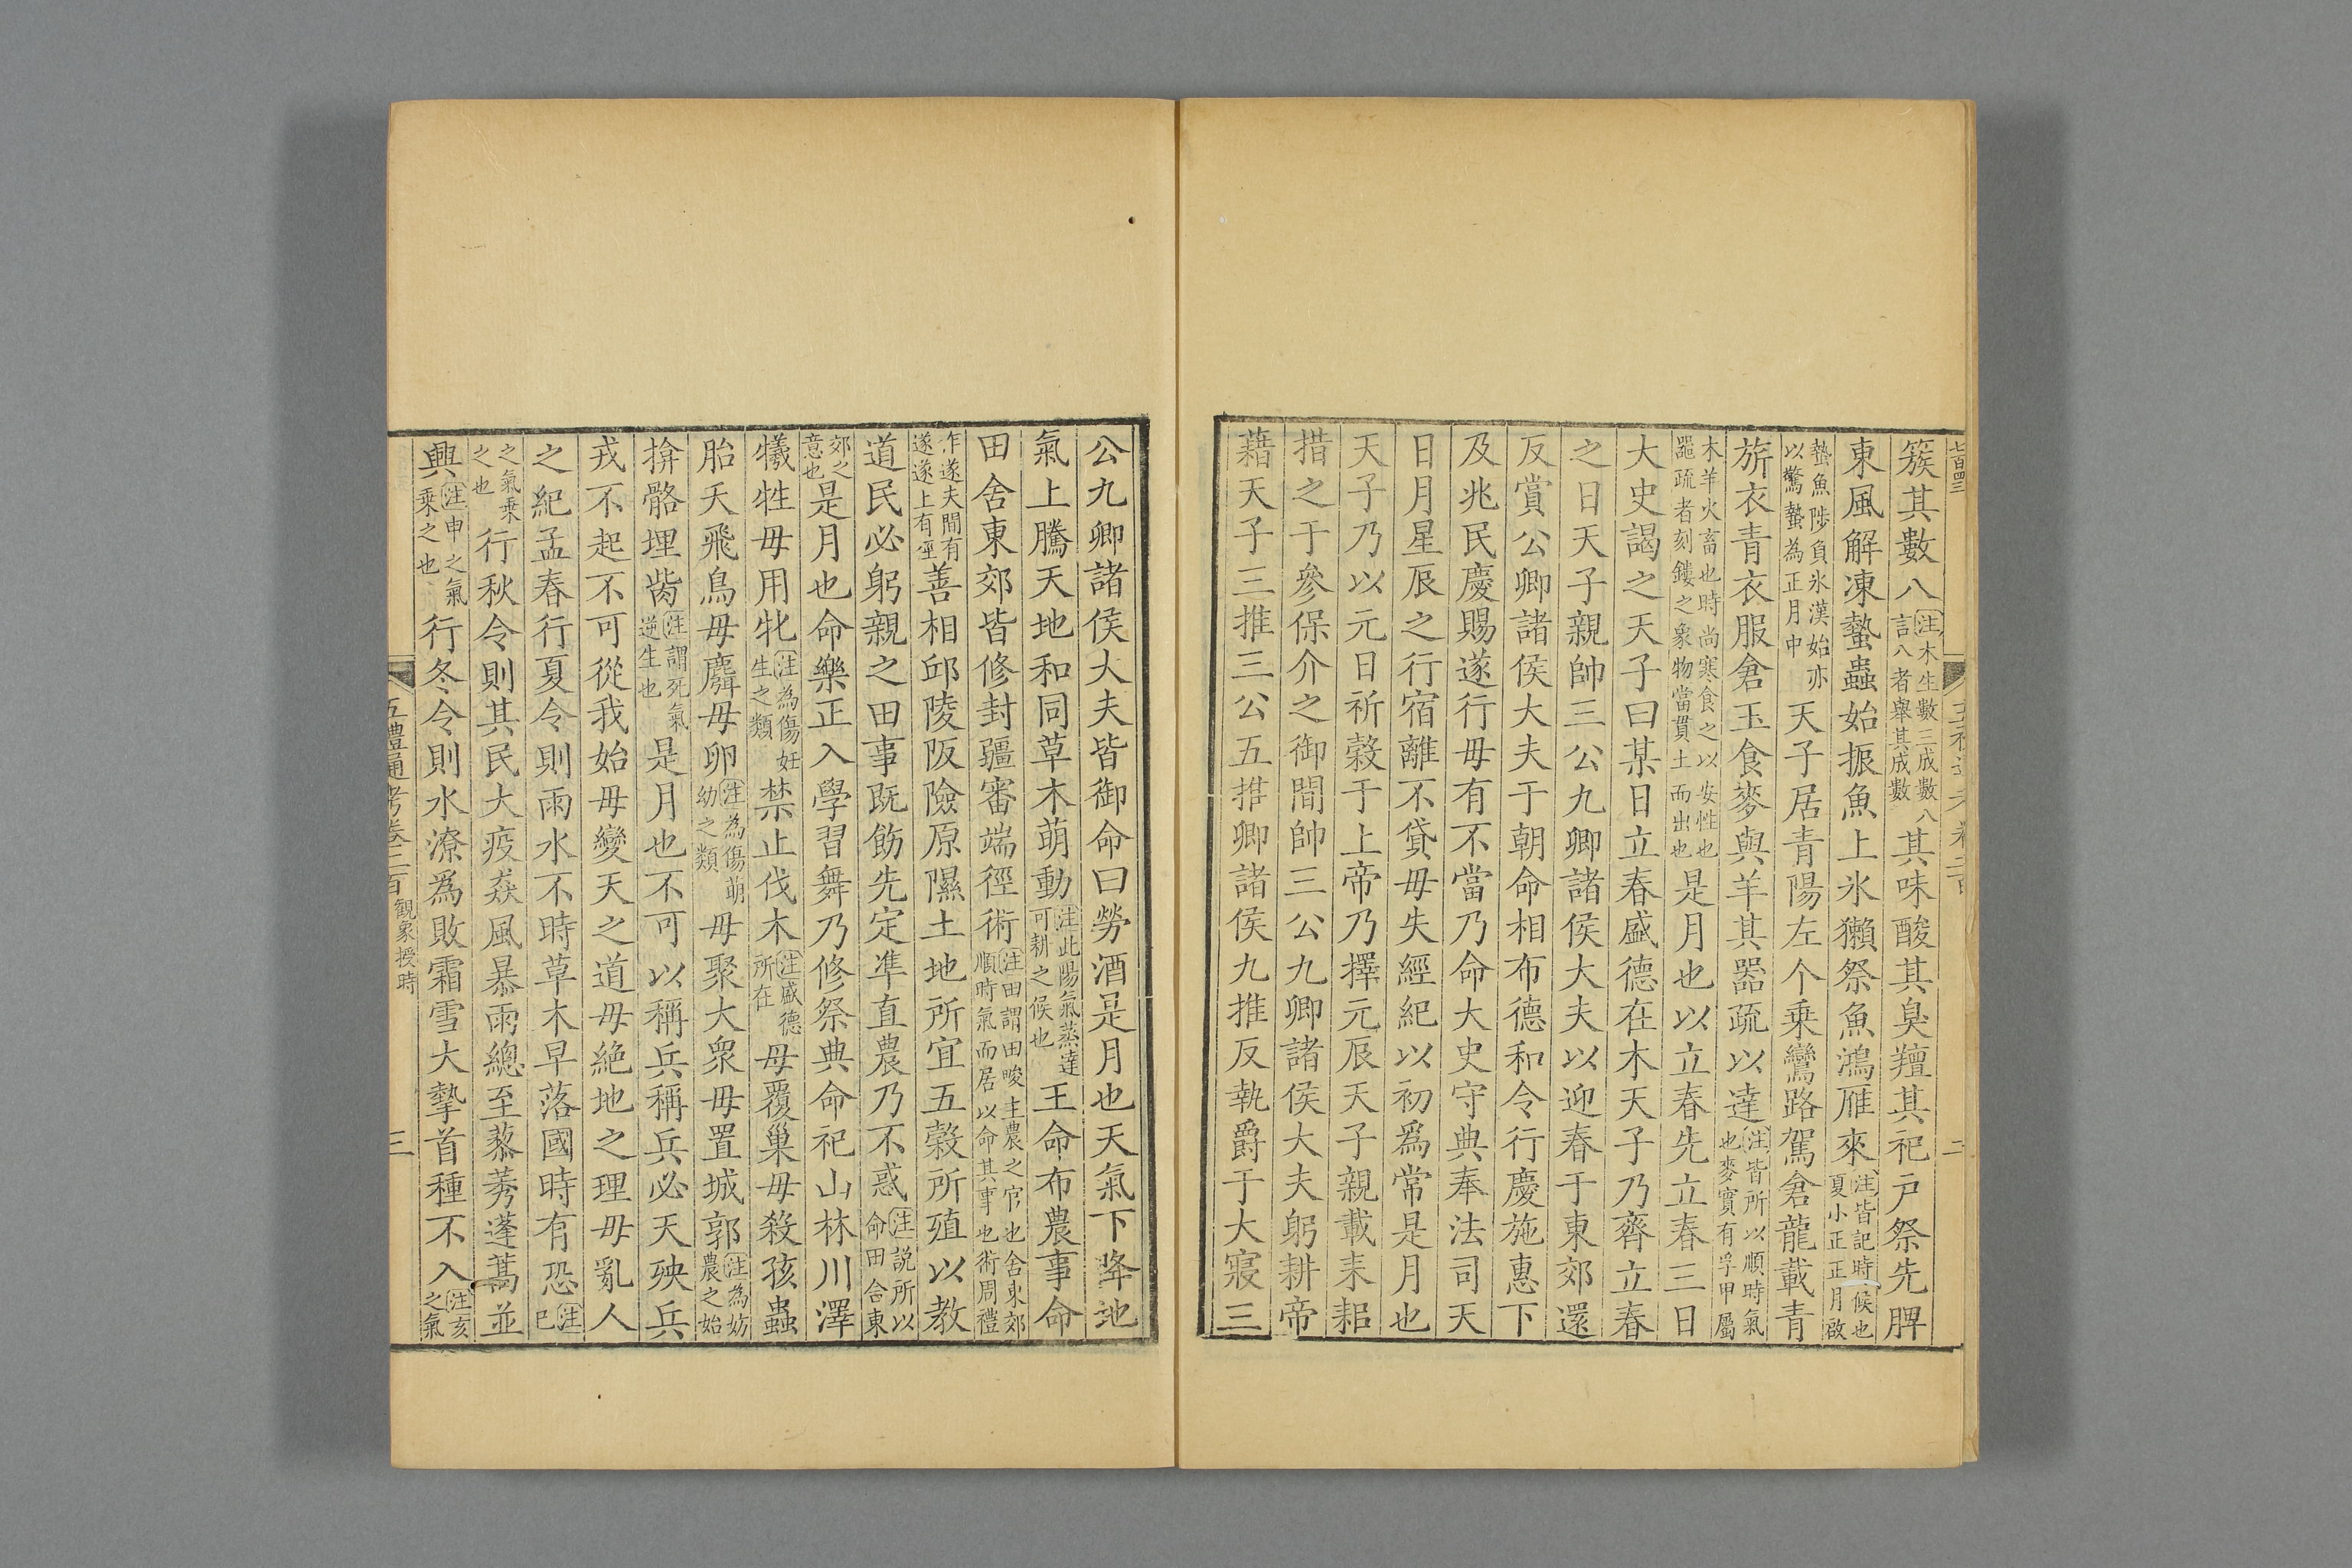 七百四三
二
簇其數八注木生數三成數八言八者舉其成數其味酸其臭羶其祀戸祭先脾
東風解凍蟄蟲始振魚上氷獺祭魚鴻雁來注皆記時候也夏小正正月啟
蟄魚陟負氷漢始亦以驚蟄為正月中天子居青陽左个乗鸞路駕倉龍載青
旂衣青衣服倉玉食麥與羊其噐疏以達注皆所以順時氣也麥實有孚甲屬
木羊火畜也時尚寒食之以安性也噐疏者刻鏤之象物當貫土而出也是月也以立春先立春三日
大史謁之天子曰某日立春盛德在木天子乃齊立春
之日天子親帥三公九卿諸侯大夫以迎春于東郊還
反賞公卿諸侯大夫于朝命相布德和令行慶施惠下
及兆民慶賜遂行毋有不當乃命大史守典奉法司天
日月星辰之行宿離不貸毋失經紀以初爲常是月也
天子乃以元日祈穀于上帝乃擇元辰天子親載耒耜
措之于參保介之御間帥三公九卿諸侯大夫躬耕帝
藉天子三推三公五推卿諸侯九推反執爵于大寢三
公九卿諸侯大夫皆御命曰勞酒是月也天氣下降地
氣上騰天地和同草木萌動注此陽氣蒸達可耕之候也王命布農事命
田舍東郊皆修封疆審端徑術注田謂田畯主農之官也舍東郊順時氣而居以命其事也術周禮
作遂夫間有遂遂上有徑善相邱陵阪險原隰土地所宜五穀所殖以教
道民必躬親之田事既飭先定凖直農乃不惑注説所以命田舍東
郊之意也是月也命樂正入學習舞乃修祭典命祀山林川澤
犧牲毋用牝注為傷妊生之類禁止伐木注盛德所在毋覆巢毋殺孩蟲
胎夭飛鳥毋麛毋卵注為傷萌幼之類毋聚大衆毋置城郭注為妨農之始
揜骼埋胔注謂死氣逆生也是月也不可以稱兵稱兵必天殃兵
戎不起不可從我始毋變天之道毋絶地之理毋亂人
之紀孟春行夏令則雨水不時草木早落國時有恐注巳
之氣乗之也行秋令則其民大疫猋風暴雨總至藜莠蓬蒿並
興注申之氣乗之也行冬令則水潦爲敗霜雪大摯首種不入注亥之氣
五禮通考卷二百 觀象授時
三